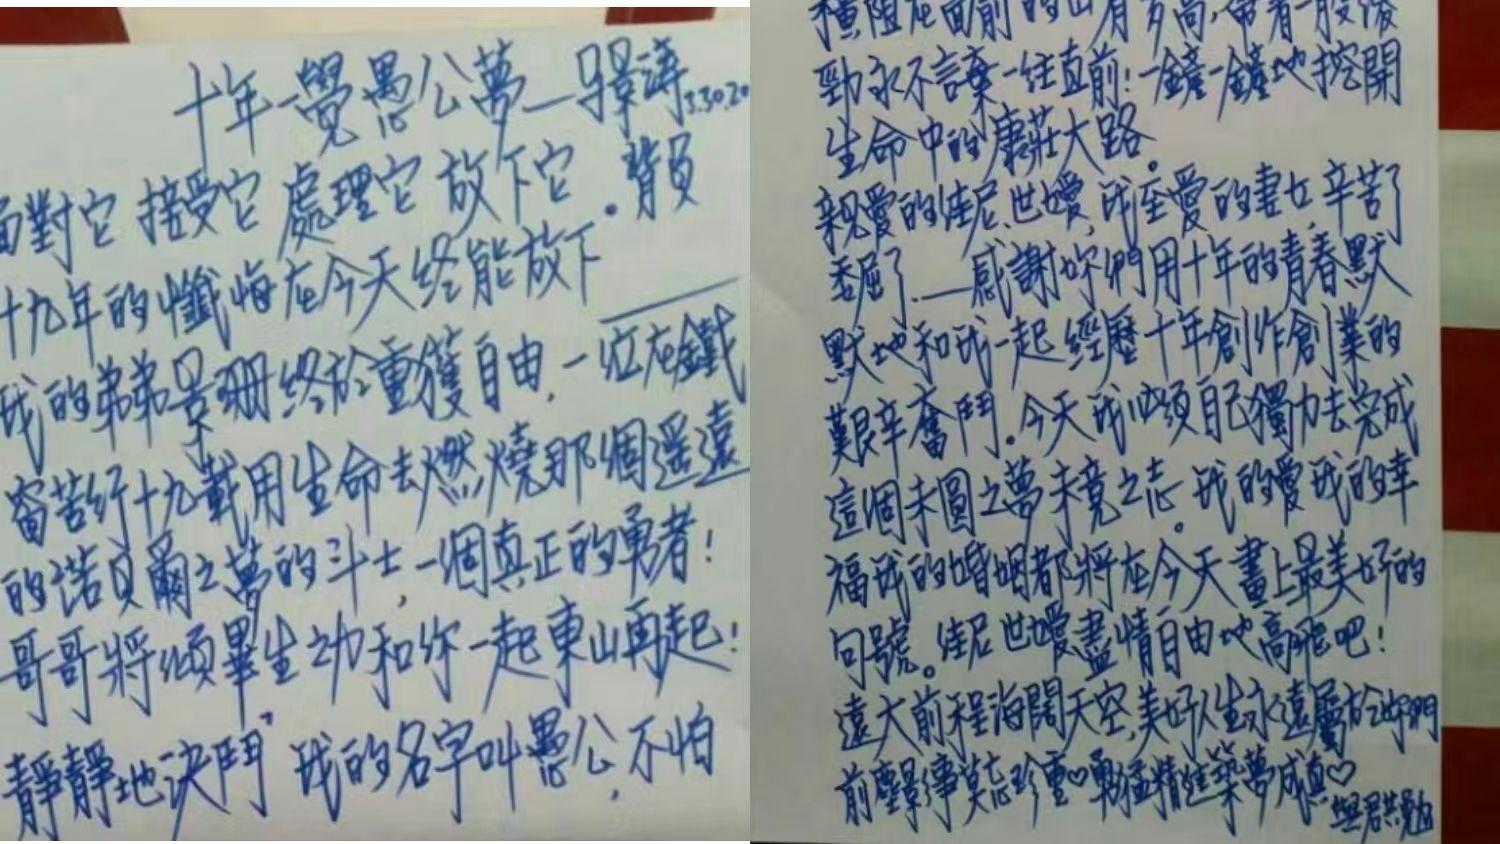 十年一覺愚公夢—馬景濤 3.30.20
面對它 接受它 處理它 放下它。背負
十九年的懺悔在今天終能放下
我的弟弟景珊終於重獲自由，一位在鐵
窗苦行十九載用生命去燃燒那個遥遠
的諾貝爾之夢的斗士，一個真正的勇者！
哥哥將傾畢生之功和你一起東山再起！
靜靜地決鬥，我的名字叫愚公，不怕
橫阻在面前的山有多高，帶着一股傻
勁永不言棄一往直前！一鏟一鏟地挖開
生命中的康莊大路。
親愛的佳尼、世嬡，我至愛的妻女，辛苦了
委屈了.—感謝妳們用十年的青春默
默地和我一起經歷十年創作創業的
艱辛奮鬥。今天我必須自己獨力去完成
這個未圓之夢未竟之志。我的愛我的幸
福我的婚姻都將在今天畫上最美好的
句號。佳尼世嬡盡情自由地高飛吧！
遠大前程海闊天空，美好人生永遠屬於妳們
前塵影事莫忘珍重♡勇猛精進築夢成真♡
與君共勉